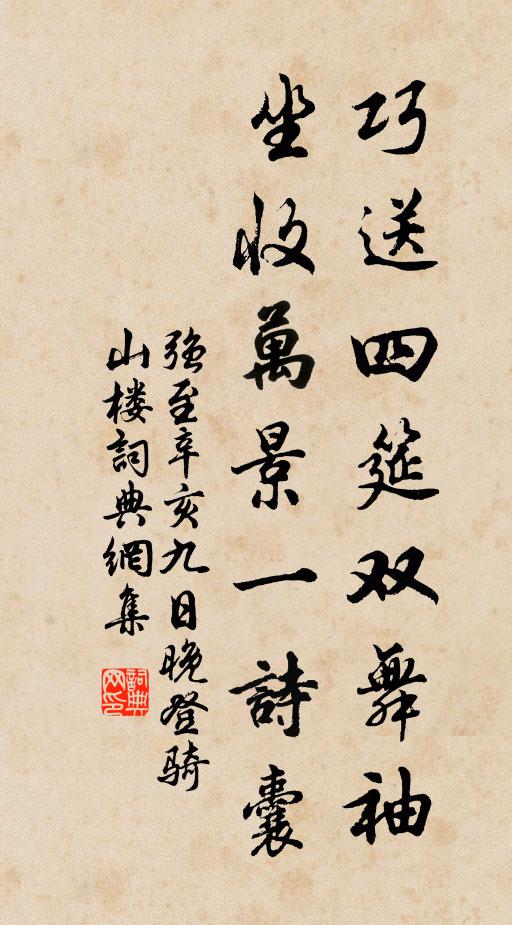 巧送四筵双舞袖
坐收萬景一詩囊
强至辛亥九日晚登骑
山楼詞典網集
詞典网印